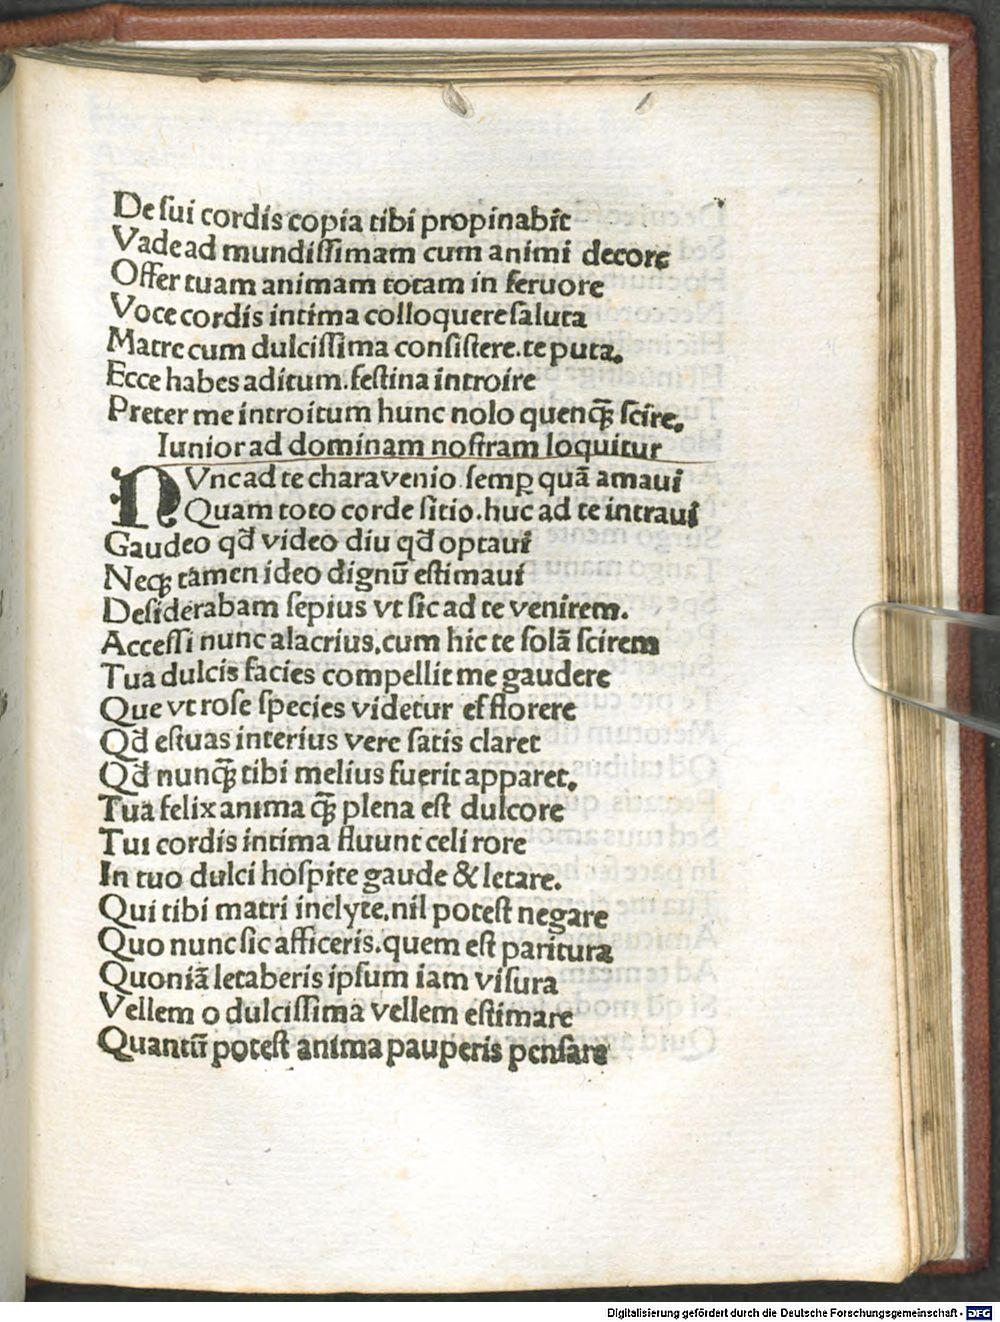 De sui cordis copia tibi propinabit
Vade ad mundissimam cum animi decore
Offer tuam animam totam in feruore
Voce cordis intima colloquere saluta
Matre cum dulcissima consistere.te puta.
Ecce habes aditum.festina introire
Preter me introitum hunc nolo quenq̃ scire.
Iunior ad dominam nostram loquitur
NVnc ad te chara venio semꝑ quã amaui
Quam toto corde sitio.huc ad te intraui
Gaudeo qđ video diu qđ optaui
Neqꝫ tamen ideo dignũ estimaui
Desiderabam sepius vt sic ad te venirem.
Accessi nunc alacrius.cum hic te solã scirem
Tua dulcis facies compellit me gaudere
Que vt rose species videtur efflorere
Qđ estuas interius vere satis claret
Qđ nunq̃ tibi melius fuerit apparet.
Tua felix anima q̃ plena est dulcore
Tui cordis intima fluunt celi rore
In tuo dulci hospite gaude & letare.
Qui tibi matri inclyte.nil potest negare
Quo nunc sic afficeris.quem est paritura
Quoniã letaberis ipsum iam visura
Vellem o dulcissima vellem estimare
Quantũ potest anima pauperis pensare
Digitalisierung gefördert durch die Deutsche Forschungsgemeinschaft - DFG